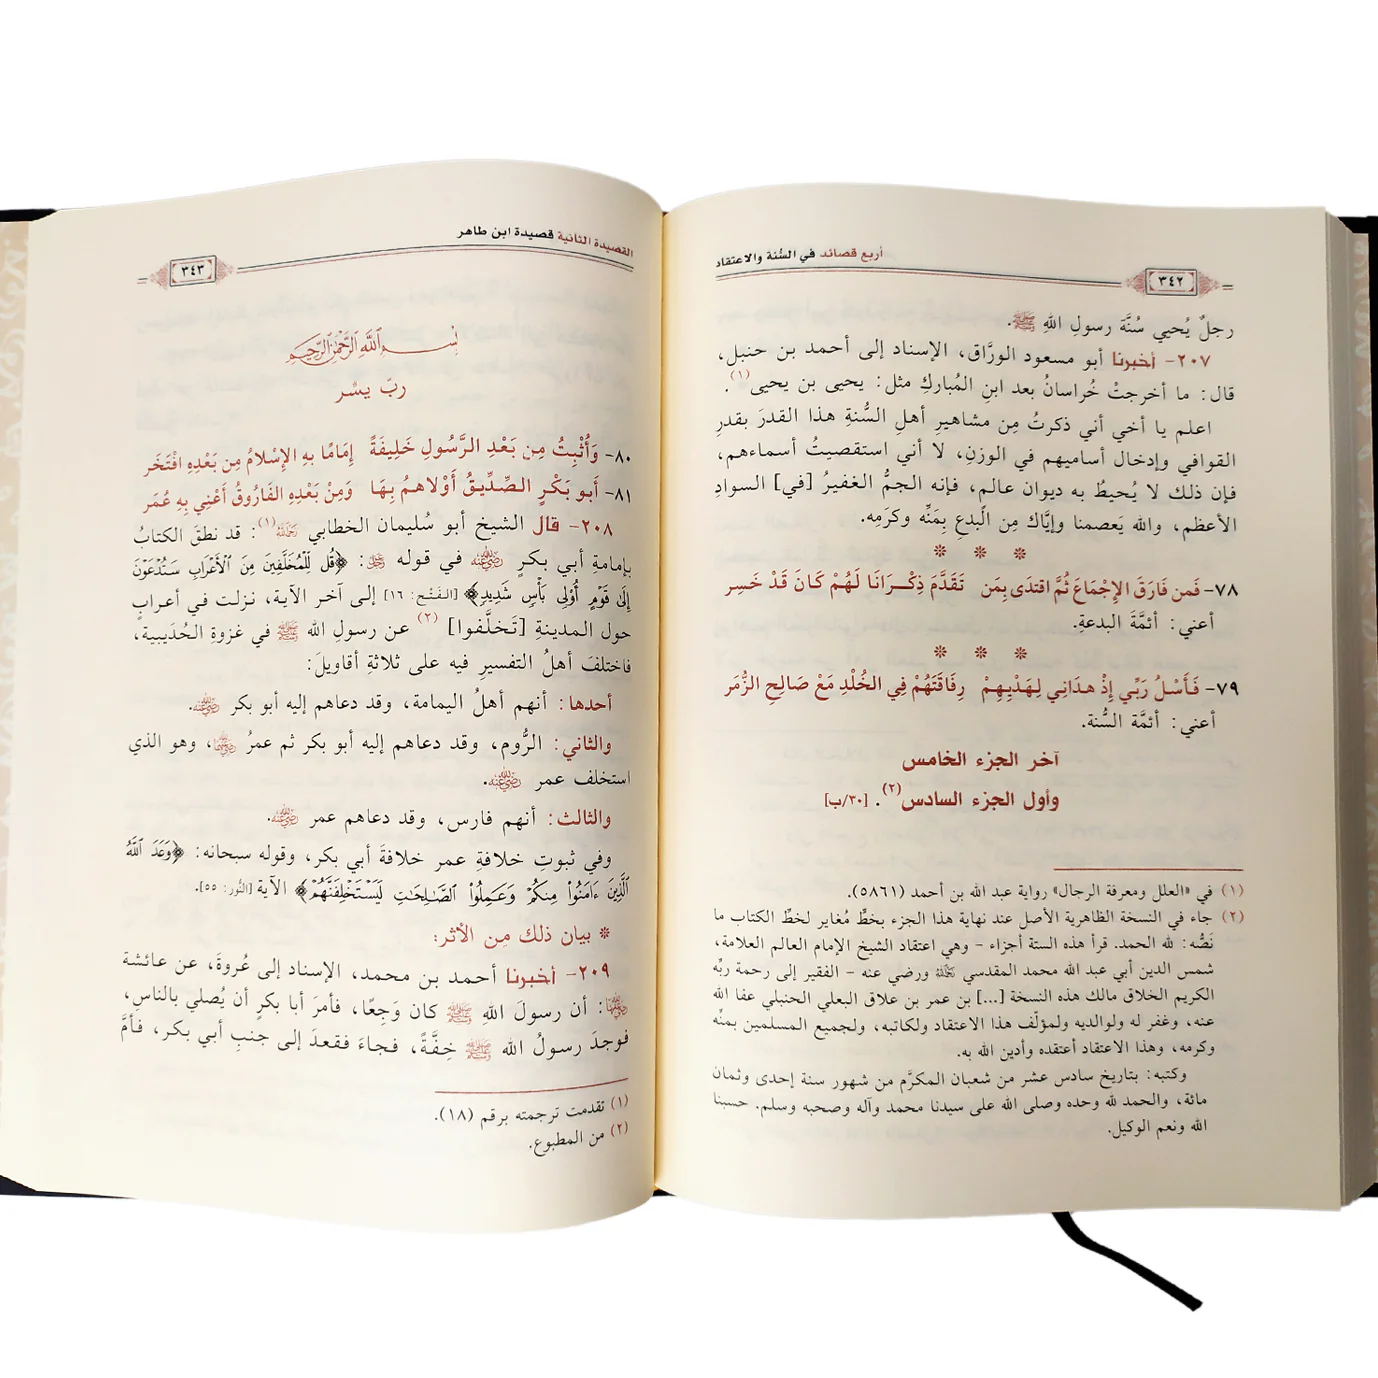 أربع قصائد في السُّنة والاعتقاد
٣٤٢
رجلٌ يُحيي سُنَّة رسولِ اللهِ ﷺ.
٢٠٧- أخبرنا أبو مسعود الورَّاق، الإسناد إلى أحمد بن حنبل،
قال: ما أخرجتْ خُراسانُ بعد ابنِ المُباركِ مثل: يحيى بن يحيى(١).
اعلم يا أخي أني ذكرتُ مِن مشاهيرِ أهلِ السُّنةِ هذا القدرَ بقدرِ
القوافي وإدخال أساميهم في الوزنِ، لا أني استقصيتُ أسماءهم،
فإن ذلك لا يُحيطُ به ديوان عالم، فإنه الجمُّ الغفيرُ [في] السوادِ
الأعظم، والله يَعصمنا وإيَّاك مِن البدعِ بِمَنِّه وكرَمِه.
* * *
٧٨- فَمن فَارَقَ الإِجْمَاعَ ثُمَّ اقتدَى بِمَن تَقَدَّمَ ذِكْرَانَا لَهُمْ كَانَ قَدْ خَسِر
أعني: أئمَّةَ البدعةِ.
* * *
٧٩- فَأَسْلُ رَبِّي إِذْ هدَانِي لِهَدْيِهِمْ رِفَاقَتَهُمْ فِي الخُلْدِ مَعْ صَالِحِ الزُّمَر
أعني: أئمَّة السُّنة.
آخر الجزء الخامس
وأول الجزء السادس(٢). [٣٠/ب]
(١) في «العلل ومعرفة الرجال» رواية عبد الله بن أحمد (٥٨٦١).
(٢) جاء في النسخة الظاهرية الأصل عند نهاية هذا الجزء بخطٍّ مُغاير لخطِّ الكتاب ما
نَصُّه: لله الحمد. قرأ هذه الستة أجزاء - وهي اعتقاد الشيخ الإمام العالم العلامة،
شمس الدين أبي عبد الله محمد المقدسي رحمه الله ورضي عنه - الفقير إلى رحمة ربِّه
الكريم الخلاق مالك هذه النسخة [...] بن عمر بن علاق البعلي الحنبلي عفا الله
عنه، وغفر له ولوالديه ولمؤلِّف هذا الاعتقاد ولكاتبه، ولجميع المسلمين بمنِّه
وكرمه، وهذا الاعتقاد أعتقده وأدين الله به.
وكتبه: بتاريخ سادس عشر من شعبان المكرَّم من شهور سنة إحدى وثمان
مائة، والحمد لله وحده وصلى الله على سيدنا محمد وآله وصحبه وسلم. حسبنا
الله ونعم الوكيل.
القصيدة الثانية قصيدة ابن طاهر
٣٤٣
بسم الله الرحمن الرحيم
ربّ يسِّر
٨٠- وَأُثْبِتُ مِن بَعْدِ الرَّسُولِ خَلِيفَةً إِمَامًا بهِ الإِسْلامُ مِن بَعْدِهِ افْتَخَر
٨١- أَبو بَكْرٍ الصِّدِّيقُ أَوْلاهمُ بِهَا وَمِنْ بَعْدِهِ الفَارُوقُ أَعْنِي بِهِ عُمَر
٢٠٨- قال الشيخ أبو سُليمان الخطابي رحمه الله(١): قد نطقَ الكتابُ
بإمامةِ أبي بكرٍ رضي الله عنه في قوله عز وجل: ﴿قُل لِّلْمُخَلَّفِينَ مِنَ ٱلْأَعْرَابِ سَتُدْعَوْنَ
إِلَىٰ قَوْمٍ أُوْلِي بَأْسٍ شَدِيدٍ﴾ [الفَتْح: ١٦] إلى آخر الآية، نزلت في أعرابٍ
حول المدينةِ [تَخلَّفوا](٢) عن رسولِ الله ﷺ في غزوةِ الحُدَيبية،
فاختلفَ أهلُ التفسيرِ فيه على ثلاثةِ أقاويلَ:
أحدها: أنهم أهلُ اليمامة، وقد دعاهم إليه أبو بكر رضي الله عنه.
والثاني: الرُّوم، وقد دعاهم إليه أبو بكر ثم عمرُ رضي الله عنهما، وهو الذي
استخلف عمر رضي الله عنه.
والثالث: أنهم فارس، وقد دعاهم عمر رضي الله عنه.
وفي ثبوتِ خلافةِ عمر خلافةَ أبي بكر، وقوله سبحانه: ﴿وَعَدَ ٱللَّهُ
ٱلَّذِينَ ءَامَنُواْ مِنكُمْ وَعَمِلُواْ ٱلصَّٰلِحَٰتِ لَيَسْتَخْلِفَنَّهُمْ﴾ الآية [النُّور: ٥٥].
* بيان ذلك مِن الأثر:
٢٠٩- أخبرنا أحمد بن محمد، الإسناد إلى عُروةَ، عن عائشة
رضي الله عنها: أن رسولَ اللهِ ﷺ كان وَجِعًا، فأمرَ أبا بكرٍ أن يُصلي بالناسِ،
فوجدَ رسولُ الله ﷺ خِفَّةً، فجاءَ فقعدَ إلى جنبِ أبي بكر، فأمَّ
(١) تقدمت ترجمته برقم (١٨).
(٢) من المطبوع.